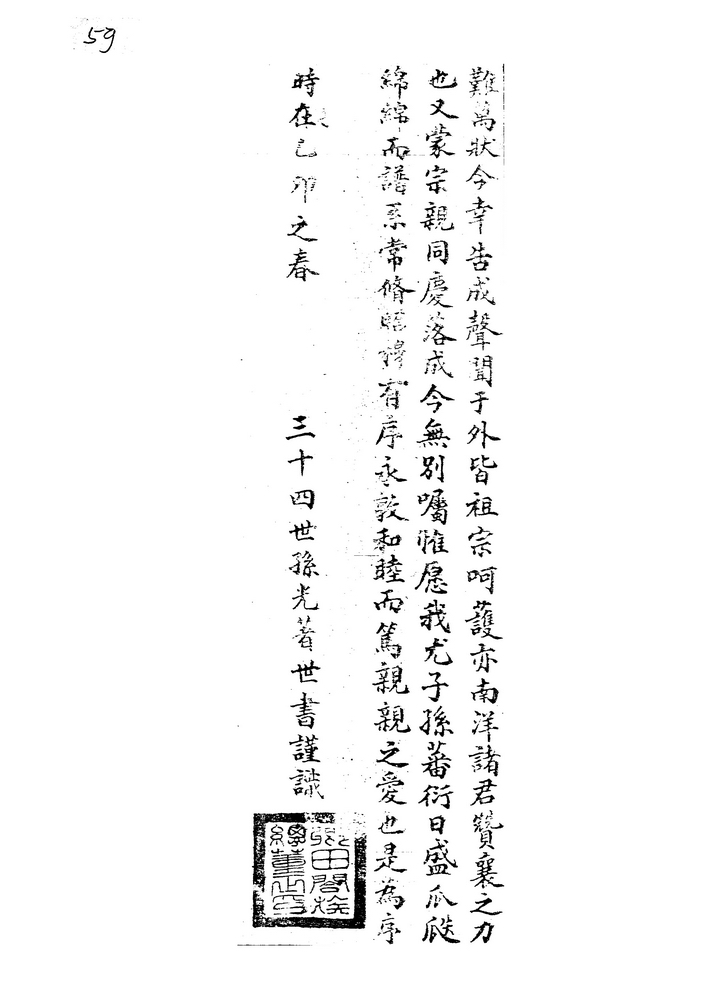 59
難萬狀今幸告成聲聞于外皆祖宗呵護亦南洋諸君贊襄之力
也又蒙宗親同慶落成今無別囑惟愿我尤子孫蕃衍日盛瓜瓞
綿綿而譜系常脩昭穆有序永敦和睦而篤親親之愛也是為序
時在己卯之春 三十四世孫光著世書謹識